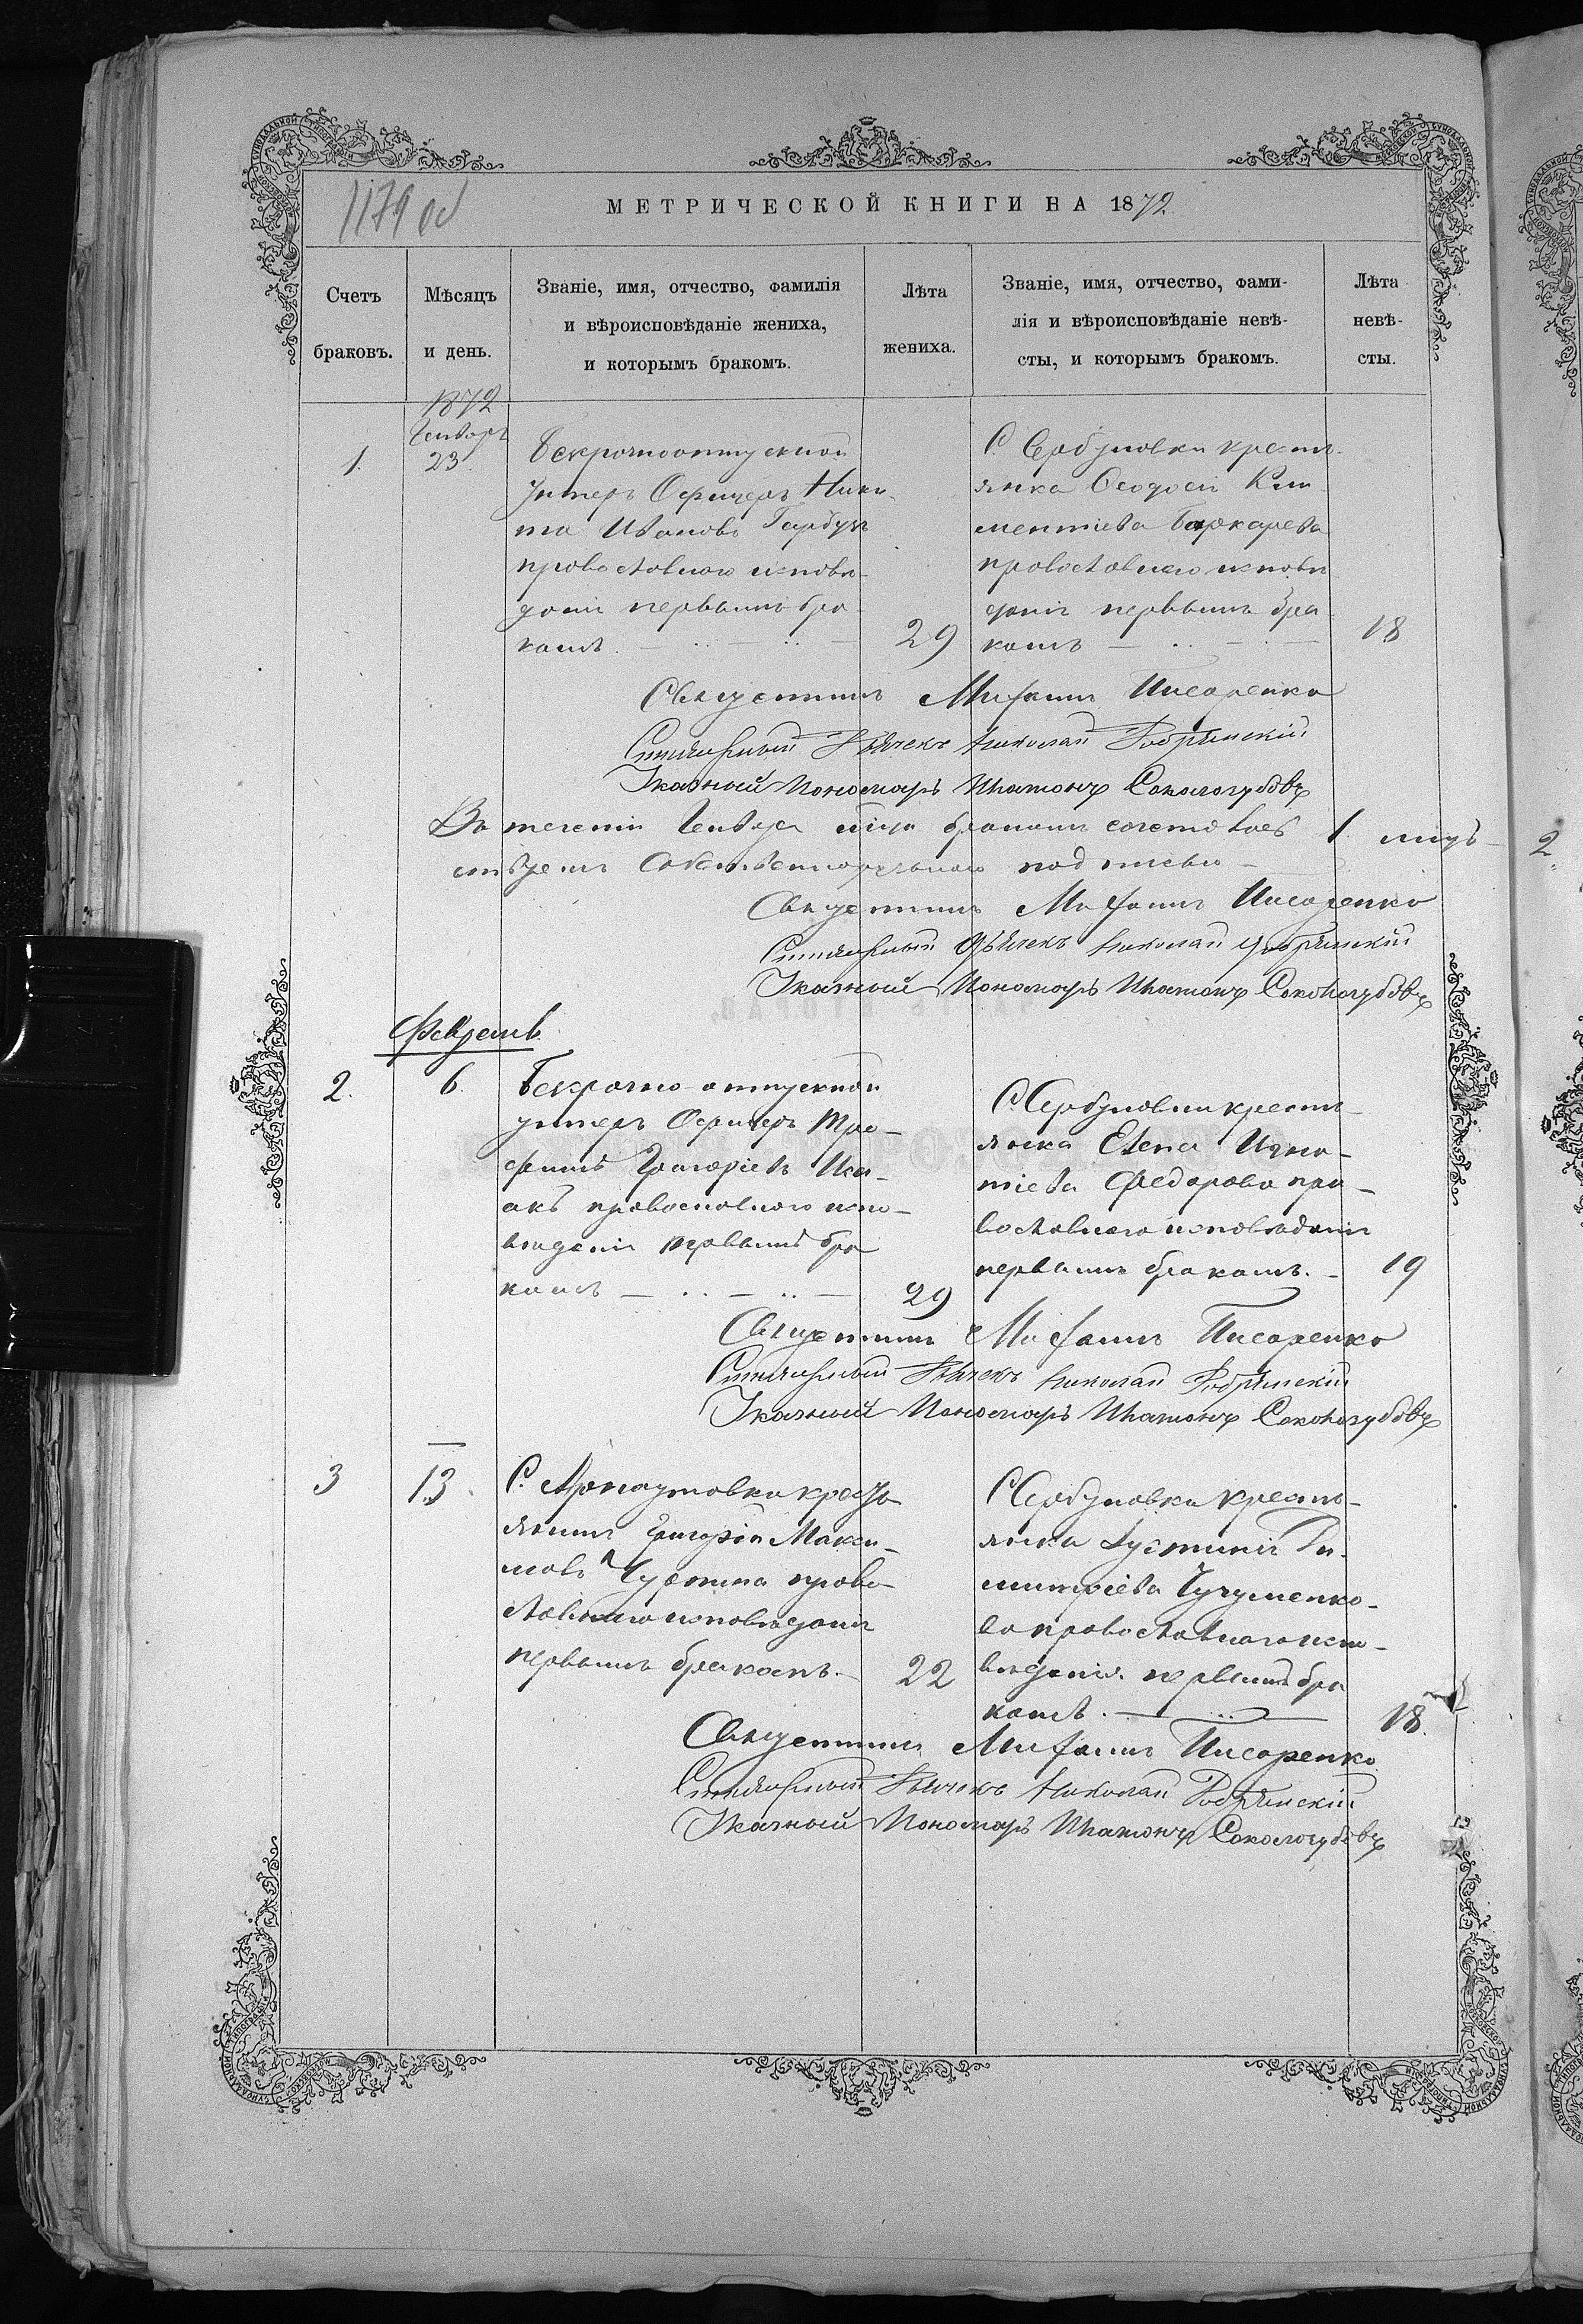 1179 об
МЕТРИЧЕСКОЙ КНИГИ НА 1872.
Счетъ браковъ.
Мѣсяцъ и день.
Званіе, имя, отчество, фамилія
и вѣроисповѣданіе жениха,
и которымъ бракомъ.
Лѣта жениха.
Званіе, имя, отчество, фами-
лія и вѣроисповѣданіе невѣ-
сты, и которымъ бракомъ.
Лѣта невѣ-
сты.
1872
Генваръ
1. 23.
Безсрочноотпускной
унтеръ Офицеръ Ники-
та Ивановъ Гарбуз
православного исповѣ-
данія первымъ бра-
комъ. 29
С. Сербуловки кресть-
янка Феодосія Кли-
ментіева
православного исповѣ
данія первымъ бра-
комъ 18
Священникъ Митрофанъ Писаренко
Стихарный Дьячекъ Николай Добрянскій
Указный Пономаръ Платонъ Сокологубовъ
Въ теченіи Генваря мѣсяца бракомъ сочетовавш 1.
Священникъ Митрофанъ Писаренко
Стихарный Дьячекъ Николай Добрянскій
Указный Пономаръ Платонъ Сокологубовъ
2.
Февраль
2. 6.
Безсрочно-отпускной
унтеръ Офицеръ Тро-
фимъ Григоріевъ Иса-
акъ православного испо-
вѣданія первымъ бра
комъ 29
С. Сербуловки кресть-
янка Елена Игна-
тіева Федорова пра-
вославного исповѣданія
первымъ бракомъ. 19
Священникъ Митрофанъ Писаренко
Стихарный Дьячекъ Николай Добрянскій
Указный Пономаръ Платонъ Сокологубовъ
3 13.
С. Арнаутовки кресть
янинъ Григорій Макси-
мовъ православ-
ного исповѣданія
первымъ бракомъ. 22
С. Сербуловки кресть-
янка Іустинія Ди-
митріева Чучуменко-
ва православного испо-
вѣданія первымъ бра
комъ. 18.
Священникъ Митрофанъ Писаренко
Стихарный Дьячекъ Николай Добрянскій
Указный Пономаръ Платонъ Сокологубовъ